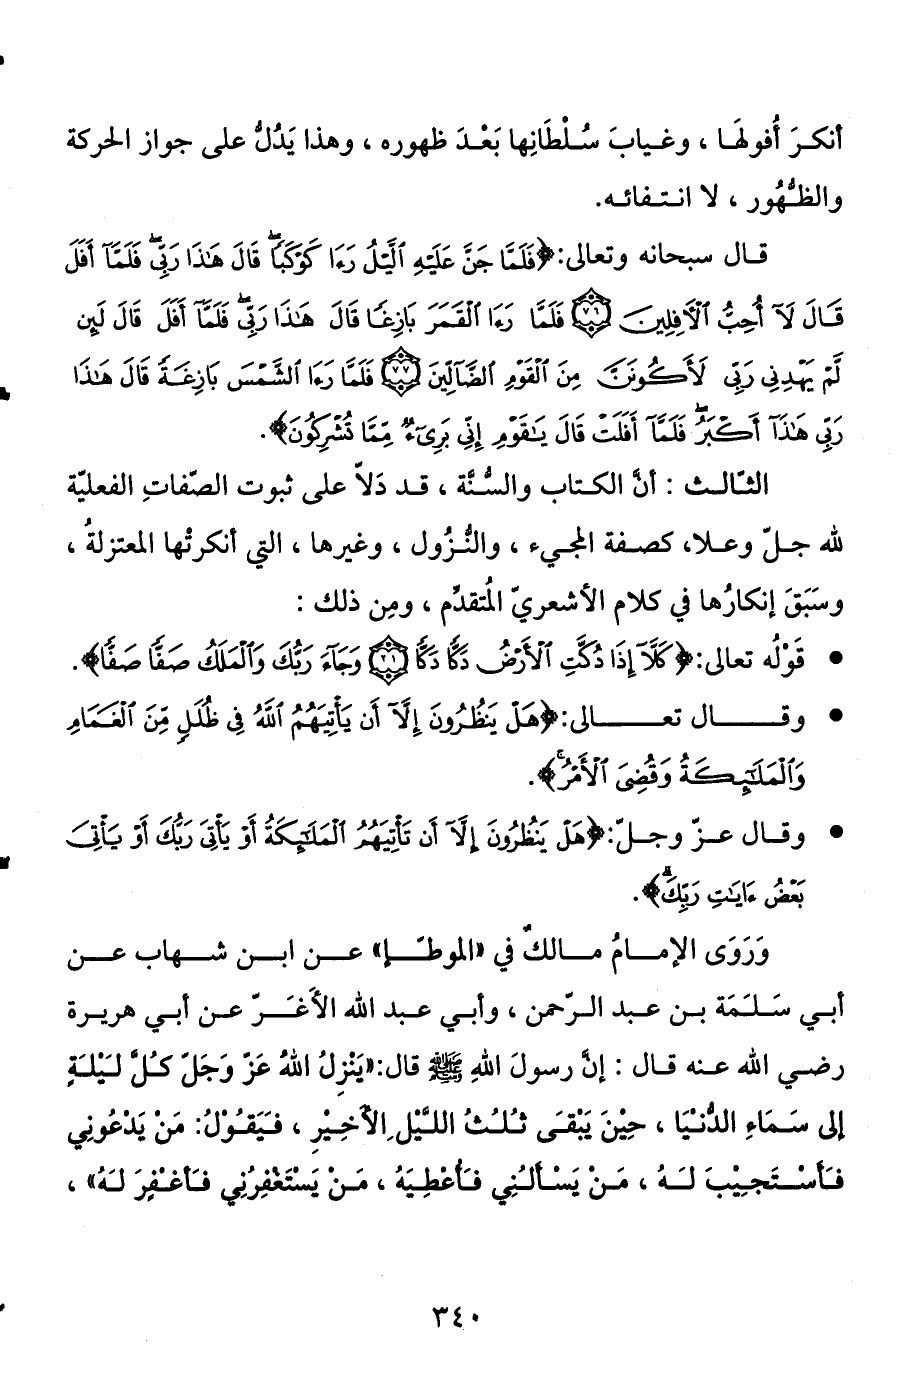 أنكـرَ أُفولَهـا ، وغـيابَ سُـلْطَانِها بَعْـدَ ظهوره ، وهذا يَدُلُّ على جواز الحركة
والظُّهُور ، لا انـتـفائه.
قـال سبحانه وتعالى:﴿فَلَمَّا جَنَّ عَلَيْهِ ٱلَّيْلُ رَءَا كَوْكَبًا ۖ قَالَ هَٰذَا رَبِّى ۖ فَلَمَّآ أَفَلَ
قَالَ لَآ أُحِبُّ ٱلْأَفِلِينَ ۝٧٦ فَلَمَّا رَءَا ٱلْقَمَرَ بَازِغًا قَالَ هَٰذَا رَبِّى ۖ فَلَمَّآ أَفَلَ قَالَ لَئِن
لَّمْ يَهْدِنِى رَبِّى لَأَكُونَنَّ مِنَ ٱلْقَوْمِ ٱلضَّآلِّينَ ۝٧٧ فَلَمَّا رَءَا ٱلشَّمْسَ بَازِغَةً قَالَ هَٰذَا
رَبِّى هَٰذَآ أَكْبَرُ ۖ فَلَمَّآ أَفَلَتْ قَالَ يَٰقَوْمِ إِنِّى بَرِىٓءٌ مِّمَّا تُشْرِكُونَ﴾.
الثـّالـث : أنَّ الكـتاب والسُّـنَّة ، قـد دَلاّ على ثبوت الصّفاتِ الفعليّة
لله جـلّ وعـلا، كصـفة المجيء ، والنُّـزُول ، وغيرها ، التي أنكرتْها المعتزلةُ ،
وسَبَقَ إنكارُها في كلام الأشعريّ المُتقدِّم ، ومِن ذلك :
• قَوْلُه تعالى:﴿كَلَّآ إِذَا دُكَّتِ ٱلْأَرْضُ دَكًّا دَكًّا ۝٢١ وَجَآءَ رَبُّكَ وَٱلْمَلَكُ صَفًّا صَفًّا﴾.
• وقـــال تعـــالى:﴿هَلْ يَنظُرُونَ إِلَّآ أَن يَأْتِيَهُمُ ٱللَّهُ فِى ظُلَلٍ مِّنَ ٱلْغَمَامِ
وَٱلْمَلَٰٓئِكَةُ وَقُضِىَ ٱلْأَمْرُ ۚ﴾.
• وقـال عـزّ وجـلّ:﴿هَلْ يَنظُرُونَ إِلَّآ أَن تَأْتِيَهُمُ ٱلْمَلَٰٓئِكَةُ أَوْ يَأْتِىَ رَبُّكَ أَوْ يَأْتِىَ
بَعْضُ ءَايَٰتِ رَبِّكَ ۗ﴾.
وَرَوَى الإمـامُ مـالكٌ في «الموطـّـإ» عــن ابـن شــهاب عــن
أبـي سَـلَـمَة بـن عبـد الـرّحمن ، وأبـي عـبد الله الأَغَــرّ عـن أبـي هريـرة
رضـي الله عـنه قـال : إنَّ رسولَ اللهِ ﷺ قال:«يَنْزِلُ اللهُ عَزّ وَجَلّ كُلَّ لَـيْلَـةٍ
إلى سَـمَاءِ الدُّنْـيَا ، حِيْنَ يَبْقَـى ثُـلُـثُ اللَّـيْلِ الآخِـيْرِ ، فَـيَقُوْلُ: مَنْ يَدْعُونِي
فَـأَسْـتَجِيْبَ لَــهُ ، مَـنْ يَسْـأَلُـنِي فَـأُعْطِـيَهُ ، مَـنْ يَسْتَغْفِرُنِي فَـأَغْـفِرَ لَـهُ» ،
٣٤٠